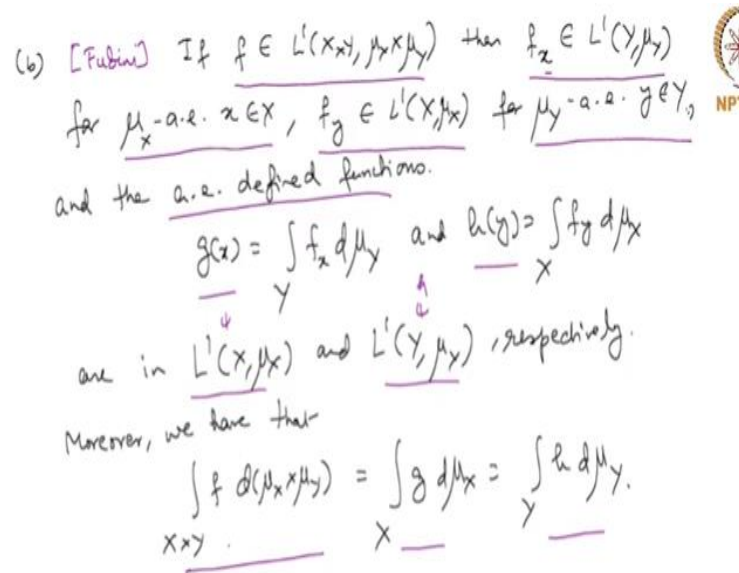 (b) [Fubini] If f ∈ L¹(X×Y, μ_X×μ_Y) then f_x ∈ L¹(Y, μ_Y)
for μ_X-a.e. x ∈ X, f_y ∈ L¹(X, μ_X) for μ_Y-a.e. y ∈ Y,
and the a.e. defined functions.
g(x) = ∫_Y f_x dμ_Y and h(y) = ∫_X f_y dμ_X
are in L¹(X, μ_X) and L¹(Y, μ_Y), respectively.
Moreover, we have that
∫_{X×Y} f d(μ_X×μ_Y) = ∫_X g dμ_X = ∫_Y h dμ_Y.
NPT